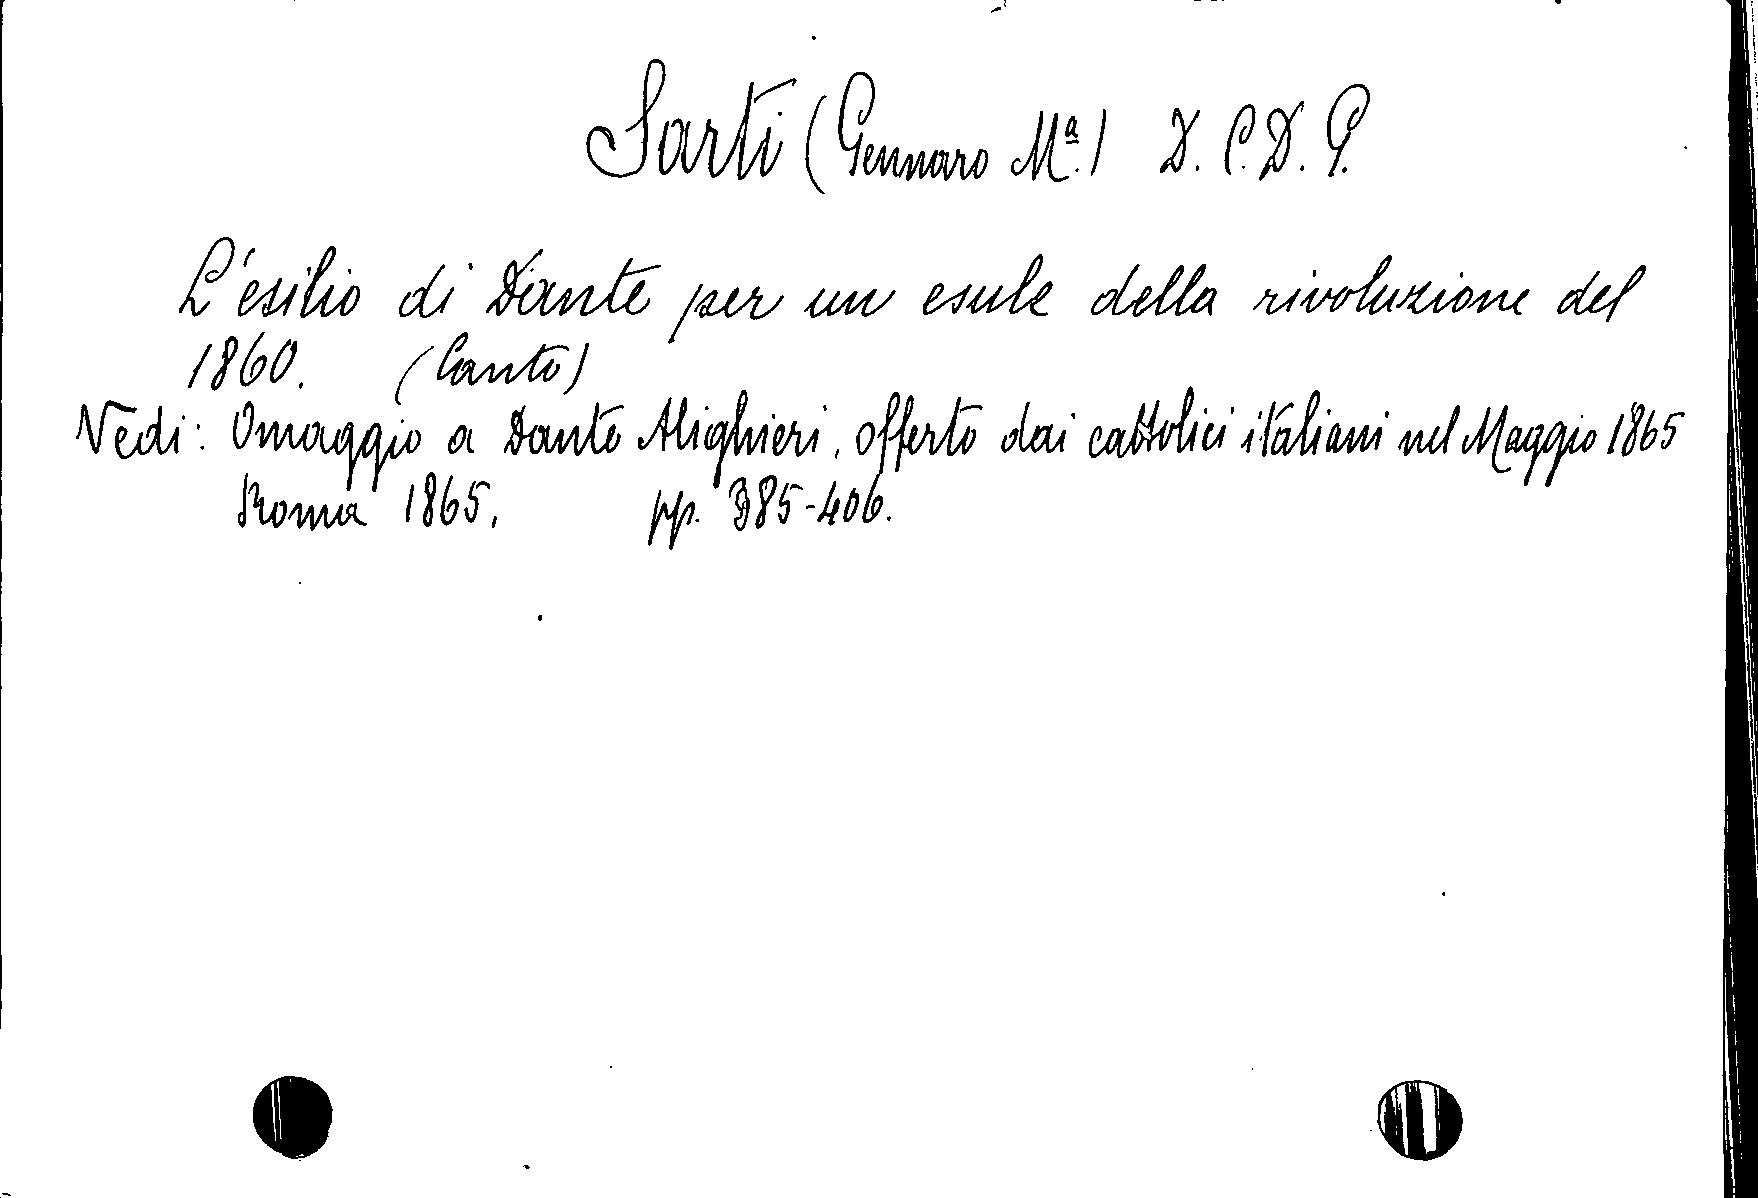 Sarti (Gennaro Mª.) D. C. D. G.
L'esilio di Dante per un esule della rivoluzione del
1860. (Canto)
Vedi: Omaggio a Dante Alighieri, offerto dai cattolici italiani nel Maggio 1865
Roma 1865. pp. 385-406.